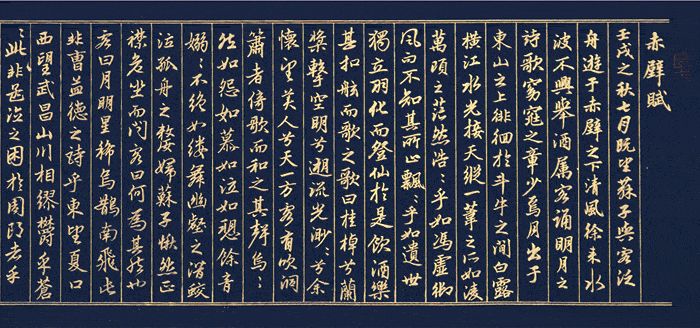 赤壁賦
壬戌之秋七月既望蘇子與客泛
舟遊于赤壁之下清風徐来水
波不興舉酒属客誦明月之
詩歌窈窕之章少焉月出于
東山之上徘徊於斗牛之間白露
橫江水光接天縱一葦之所如凌
萬頃之茫然浩〻乎如馮虛御
風而不知其所止飄〻乎如遺世
獨立羽化而登仙於是飲酒樂
甚扣舷而歌之歌曰桂棹兮蘭
槳擊空明兮溯流光渺〻兮余
懷望美人兮天一方客有吹洞
簫者倚歌而和之其聲嗚〻
然如怨如慕如泣如愬餘音
嫋〻不絕如縷舞幽壑之潛蛟
泣孤舟之嫠婦蘇子愀然正
襟危坐而問客曰何為其然也
客曰月明星稀烏鵲南飛此
非曹孟德之詩乎東望夏口
西望武昌山川相繆鬱乎蒼
〻此非孟德之困於周郎者乎